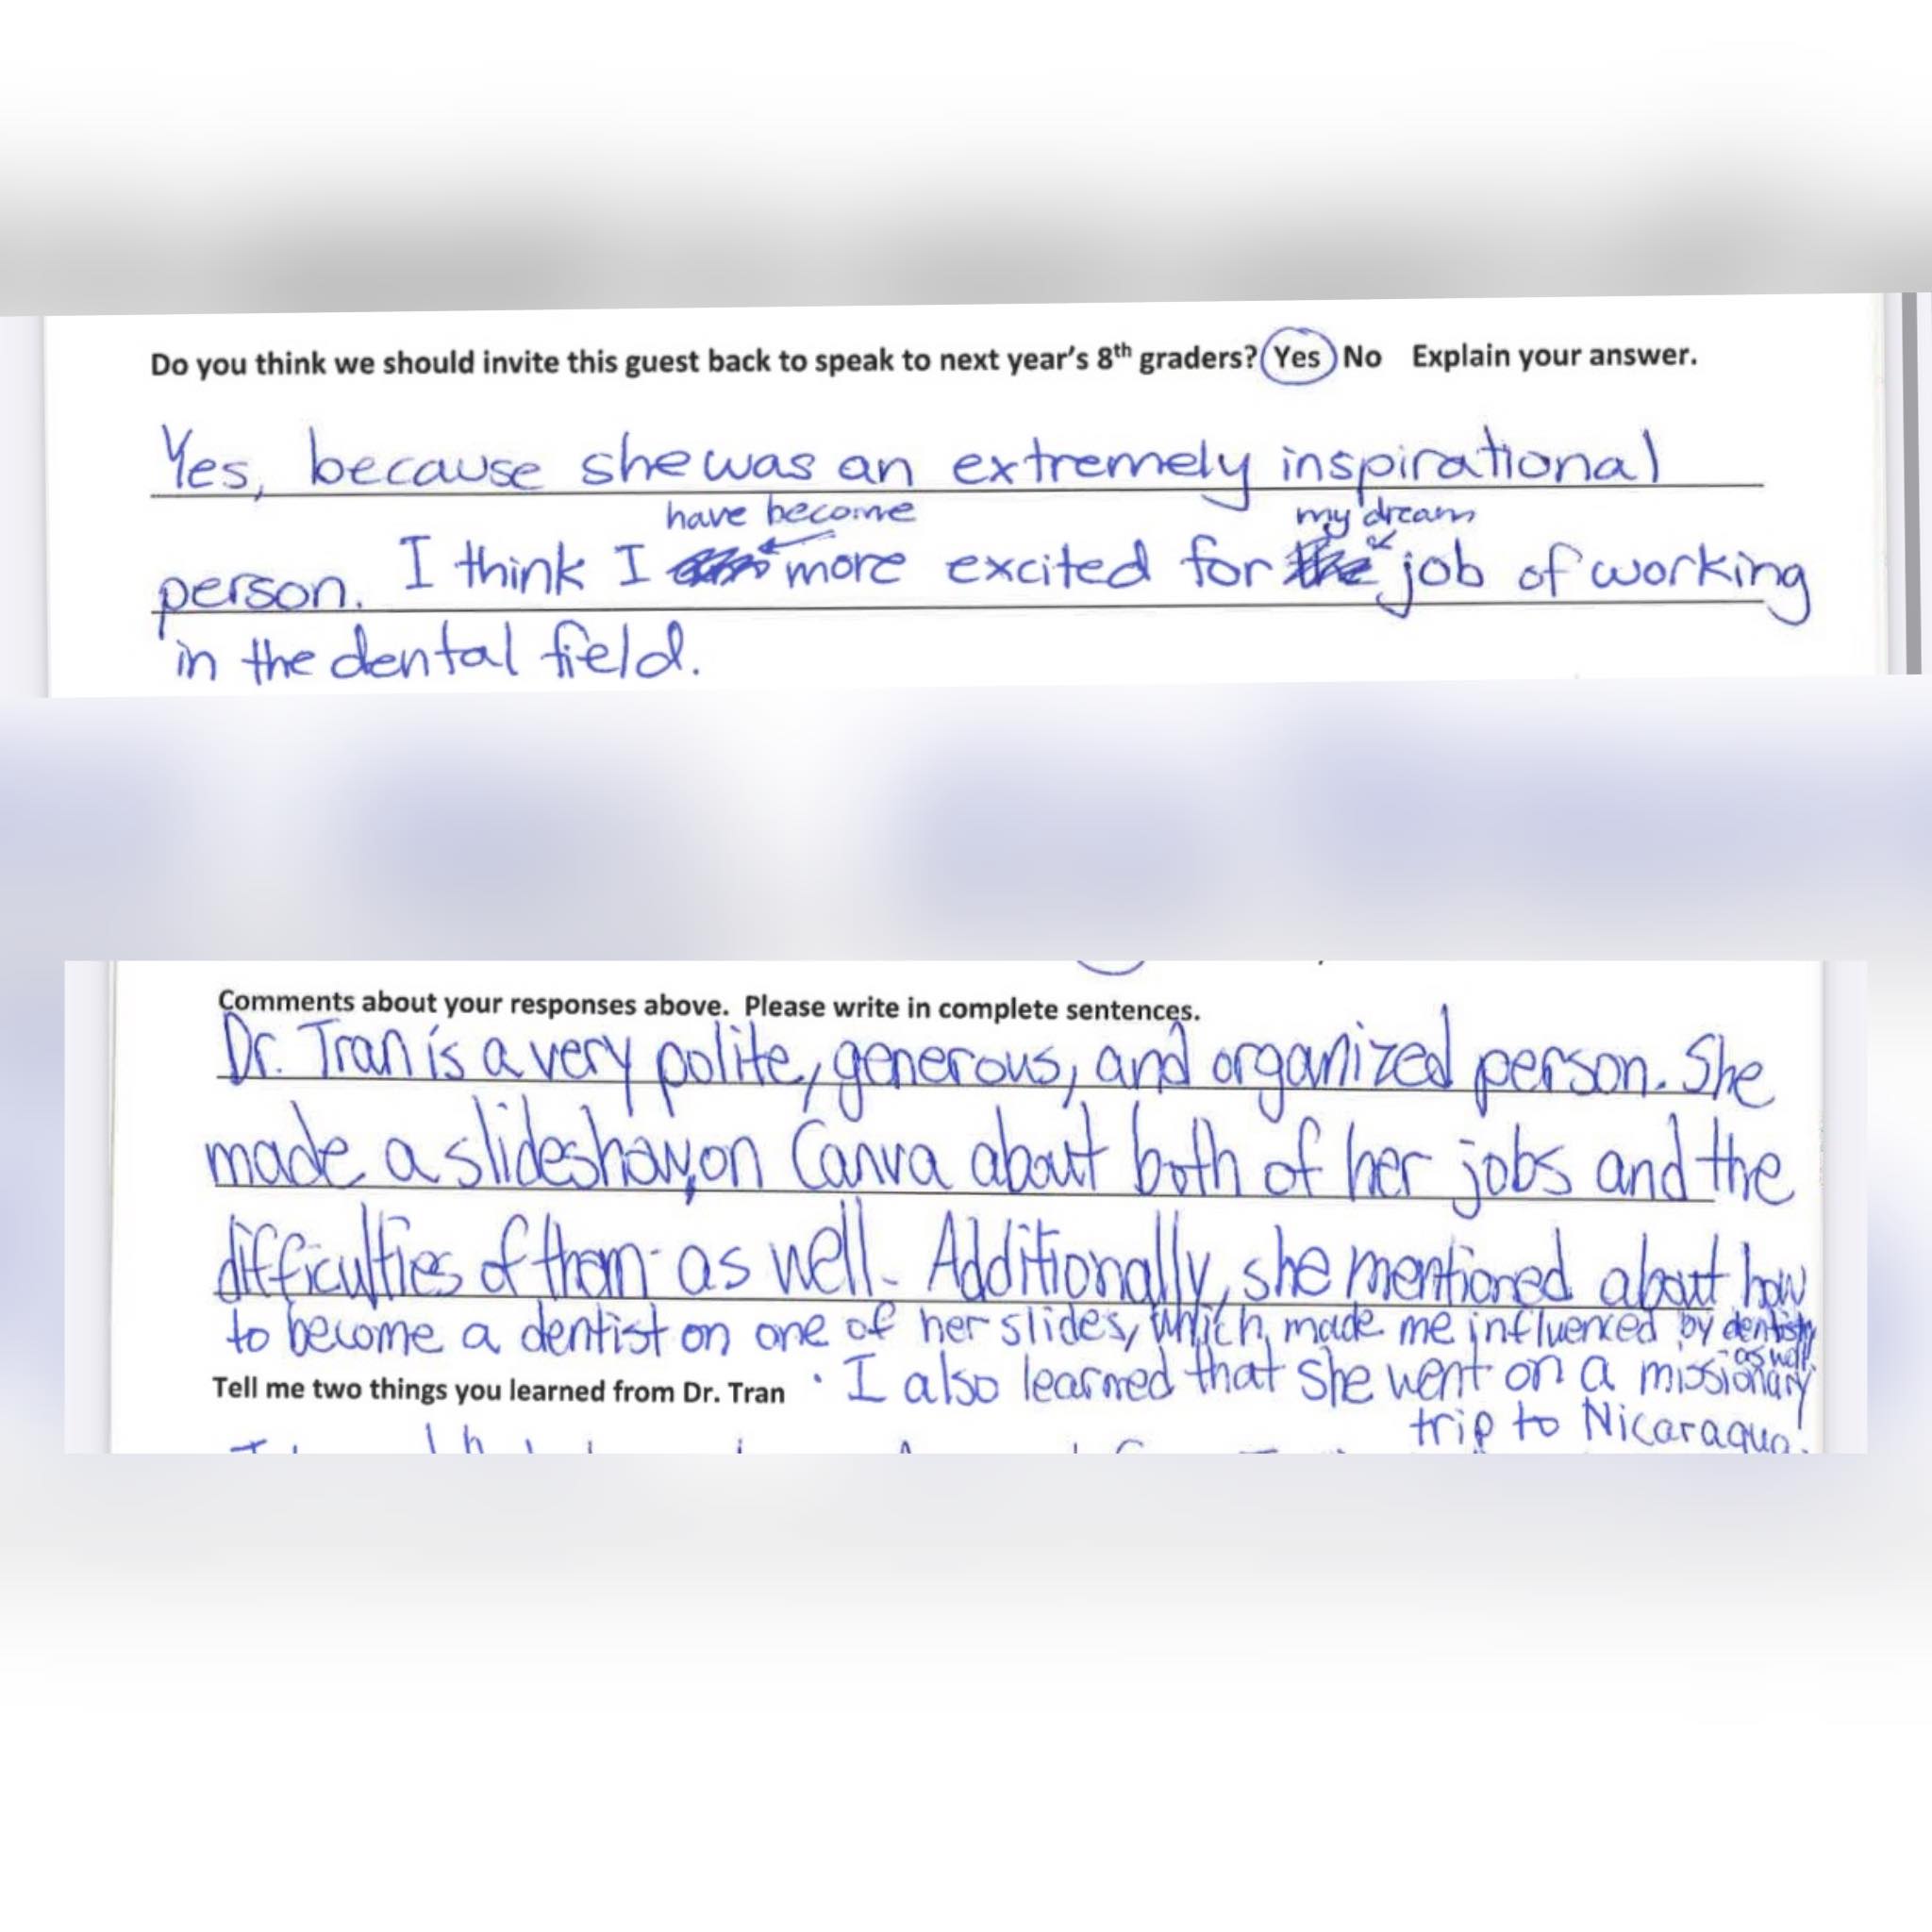 Do you think we should invite this guest back to speak to next year's 8th graders? Yes No Explain your answer.
Yes, because she was an extremely inspirational
have become my dream
person. I think I more excited for the job of working
in the dental field.
Comments about your responses above. Please write in complete sentences.
Dr. Tran is a very polite, generous, and organized person. She
made a slideshow, on Canva about both of her jobs and the
difficulties of them as well. Additionally, she mentioned about how
to become a dentist on one of her slides, which, made me influenced by dentistry
as well.
Tell me two things you learned from Dr. Tran · I also learned that she went on a missionary
trip to Nicaragua.